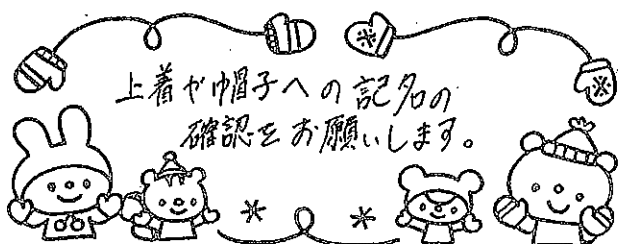 上着や帽子への記名の
確認をお願いします。